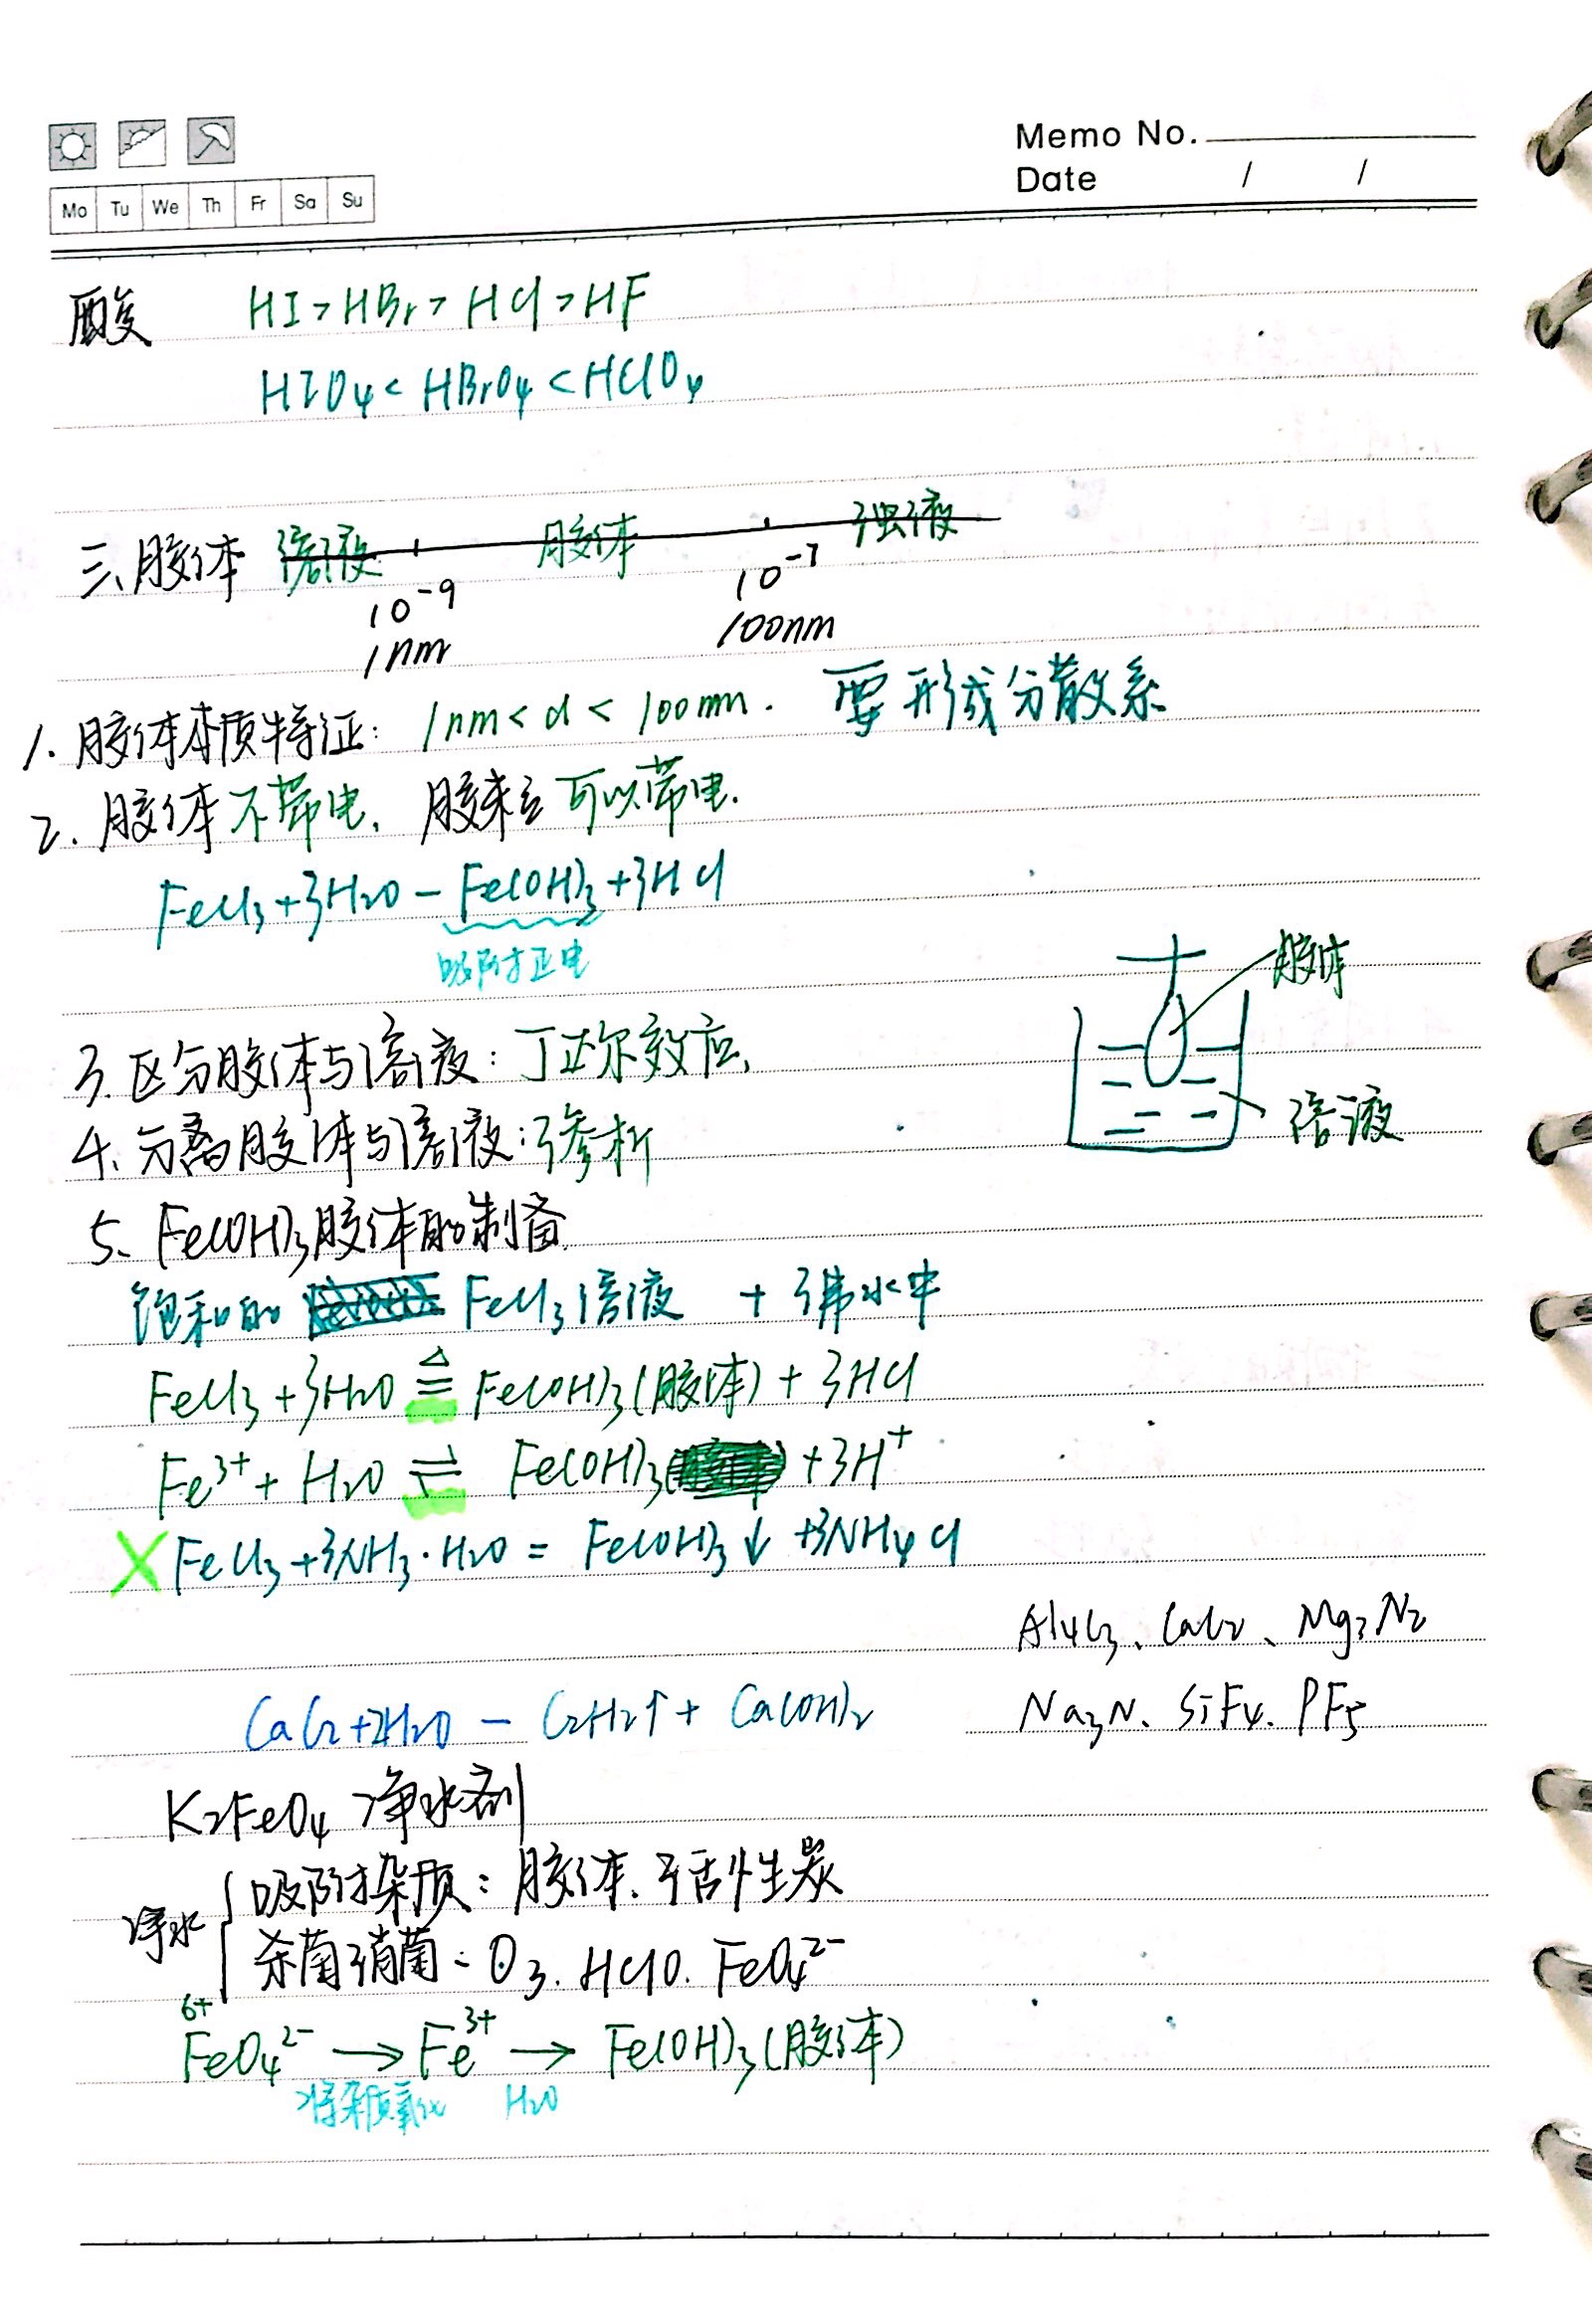 Memo No.
Date / /
Mo Tu We Th Fr Sa Su
酸 HI>HBr>HCl>HF
HIO₄<HBrO₄<HClO₄
三、胶体 溶液 胶体 浊液
10⁻⁹ 10⁻⁷
1nm 100nm
1. 胶体本质特征: 1nm<d<100nm. 要形成分散系
2. 胶体不带电, 胶粒可以带电.
FeCl₃+3H₂O—Fe(OH)₃+3HCl
吸附正电
胶体
3. 区分胶体与溶液: 丁达尔效应.
溶液
4. 分离胶体与溶液: 渗析
5. Fe(OH)₃胶体的制备
饱和的 FeCl₃溶液 + 沸水中
FeCl₃+3H₂O ≜ Fe(OH)₃(胶体)+3HCl
Fe³⁺+H₂O ⇌ Fe(OH)₃ +3H⁺
X FeCl₃+3NH₃·H₂O = Fe(OH)₃↓+3NH₄Cl
Al₄C₃、CaC₂、Mg₃N₂
CaC₂+2H₂O — C₂H₂↑+Ca(OH)₂ Na₃N、SiF₄、PF₅
K₂FeO₄ 净水剂
净水 { 吸附杂质: 胶体、活性炭
杀菌消菌: O₃. HClO. FeO₄²⁻
6+
FeO₄²⁻ → Fe³⁺ → Fe(OH)₃(胶体)
将杂质氧化 H₂O